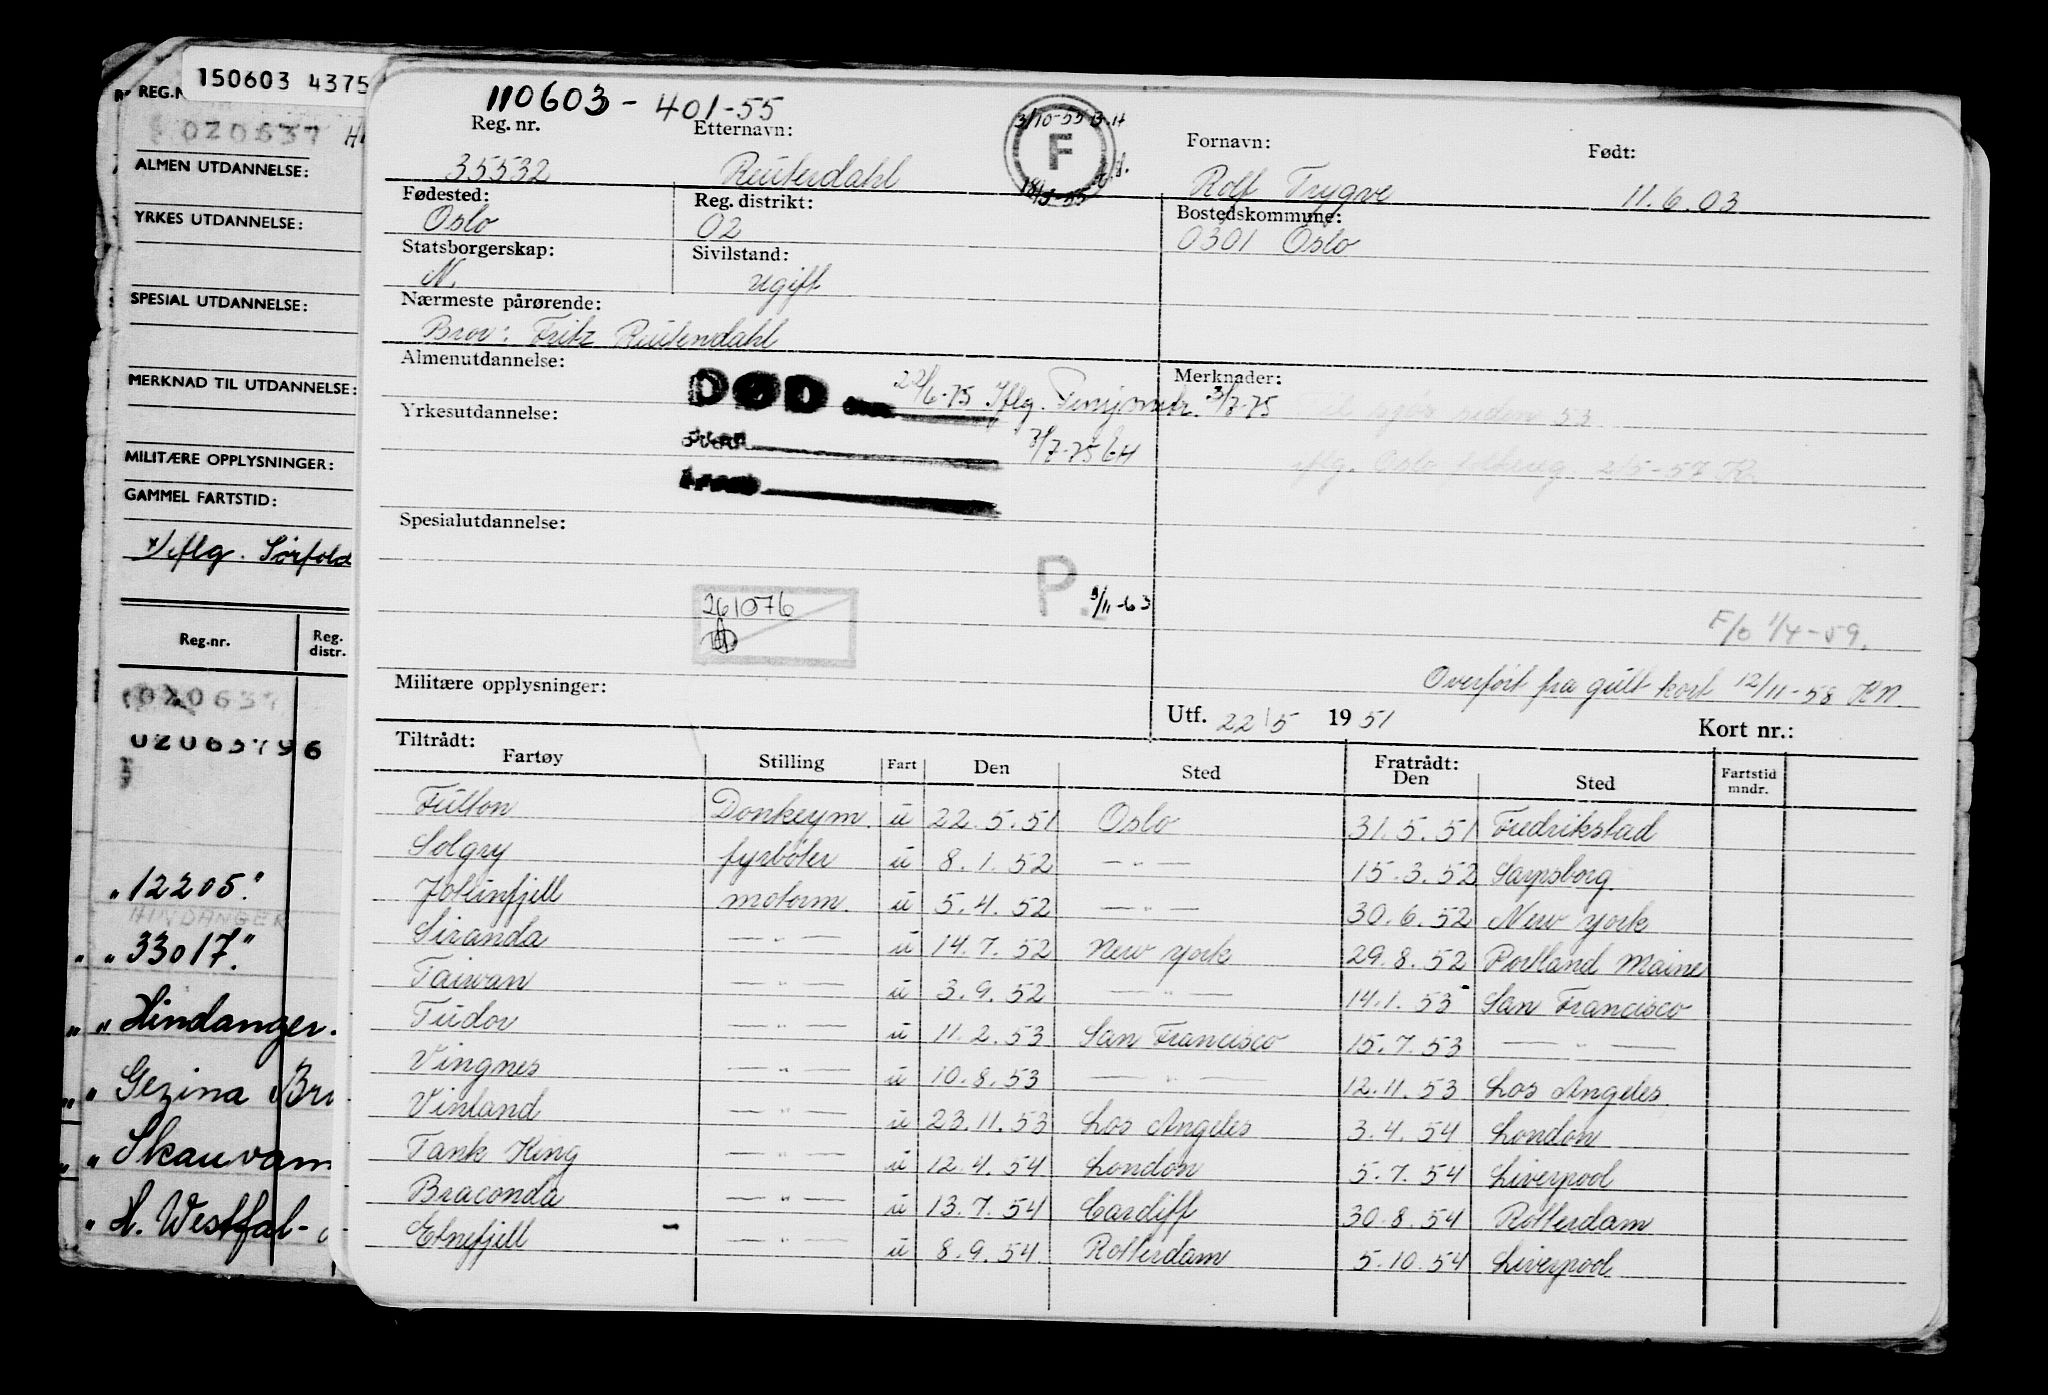 150603 4375
REG.N
020637
ALMEN UTDANNELSE:
YRKES UTDANNELSE:
SPESIAL UTDANNELSE:
MERKNAD TIL UTDANNELSE:
MILITÆRE OPPLYSNINGER:
GAMMEL FARTSTID:
iflg. Sørfold
Reg.nr. Reg. distr.
020637
02063796
"12205."
HINDANGER
" "33017."
" " Hindanger.
" " Gezina Br
" " Skauvann
" H. Westfal-
110603-401-55
3/10-55 B.H
F
18/3-55
Reg. nr. Etternavn: Fornavn: Født:
35532 Reuterdahl Rolf Trygve 11.6.03
Fødested: Reg. distrikt: Bostedskommune:
Oslo 02 0301 Oslo
Statsborgerskap: Sivilstand:
N. ugift
Nærmeste pårørende:
Bror: Fritz Reuterdahl
Almenutdannelse: Merknader:
DØD 22/6-75 Iflg. 3/7-75
siden 53
Yrkesutdannelse:
3/7-75 GH
iflg. Oslo 2/5-57 K.
Spesialutdannelse:
P. 9/11-63
261076
F/o 1/4-59.
Militære opplysninger:
Overført fra gult kort 12/11-58 KN.
Utf. 22/5 1951 Kort nr.:
Tiltrådt: Fratrådt:
Fartøy Stilling Fart Den Sted Den Sted Fartstid mndr.
Fulton Donkeym. u 22.5.51 Oslo 31.5.51 Fredrikstad
Solgry fyrbøter u 8.1.52 — " — 15.3.52 Sarpsborg
Jotunfjell motorm. u 5.4.52 — " — 30.6.52 New York
Siranda — " — u 14.7.52 New York 29.8.52 Portland Maine
Taiwan — " — u 3.9.52 — " — 14.1.53 San Francisco
Tudor — " — u 11.2.53 San Francisco 15.7.53 — " —
Vingnes — " — u 10.8.53 — " — 12.11.53 Los Angeles
Vinland — " — u 23.11.53 Los Angeles 3.4.54 London
Tank King — " — u 12.4.54 London 5.7.54 Liverpool
Braconda — " — u 13.7.54 Cardiff 30.8.54 Rotterdam
Etnefjell — " — u 8.9.54 Rotterdam 5.10.54 Liverpool